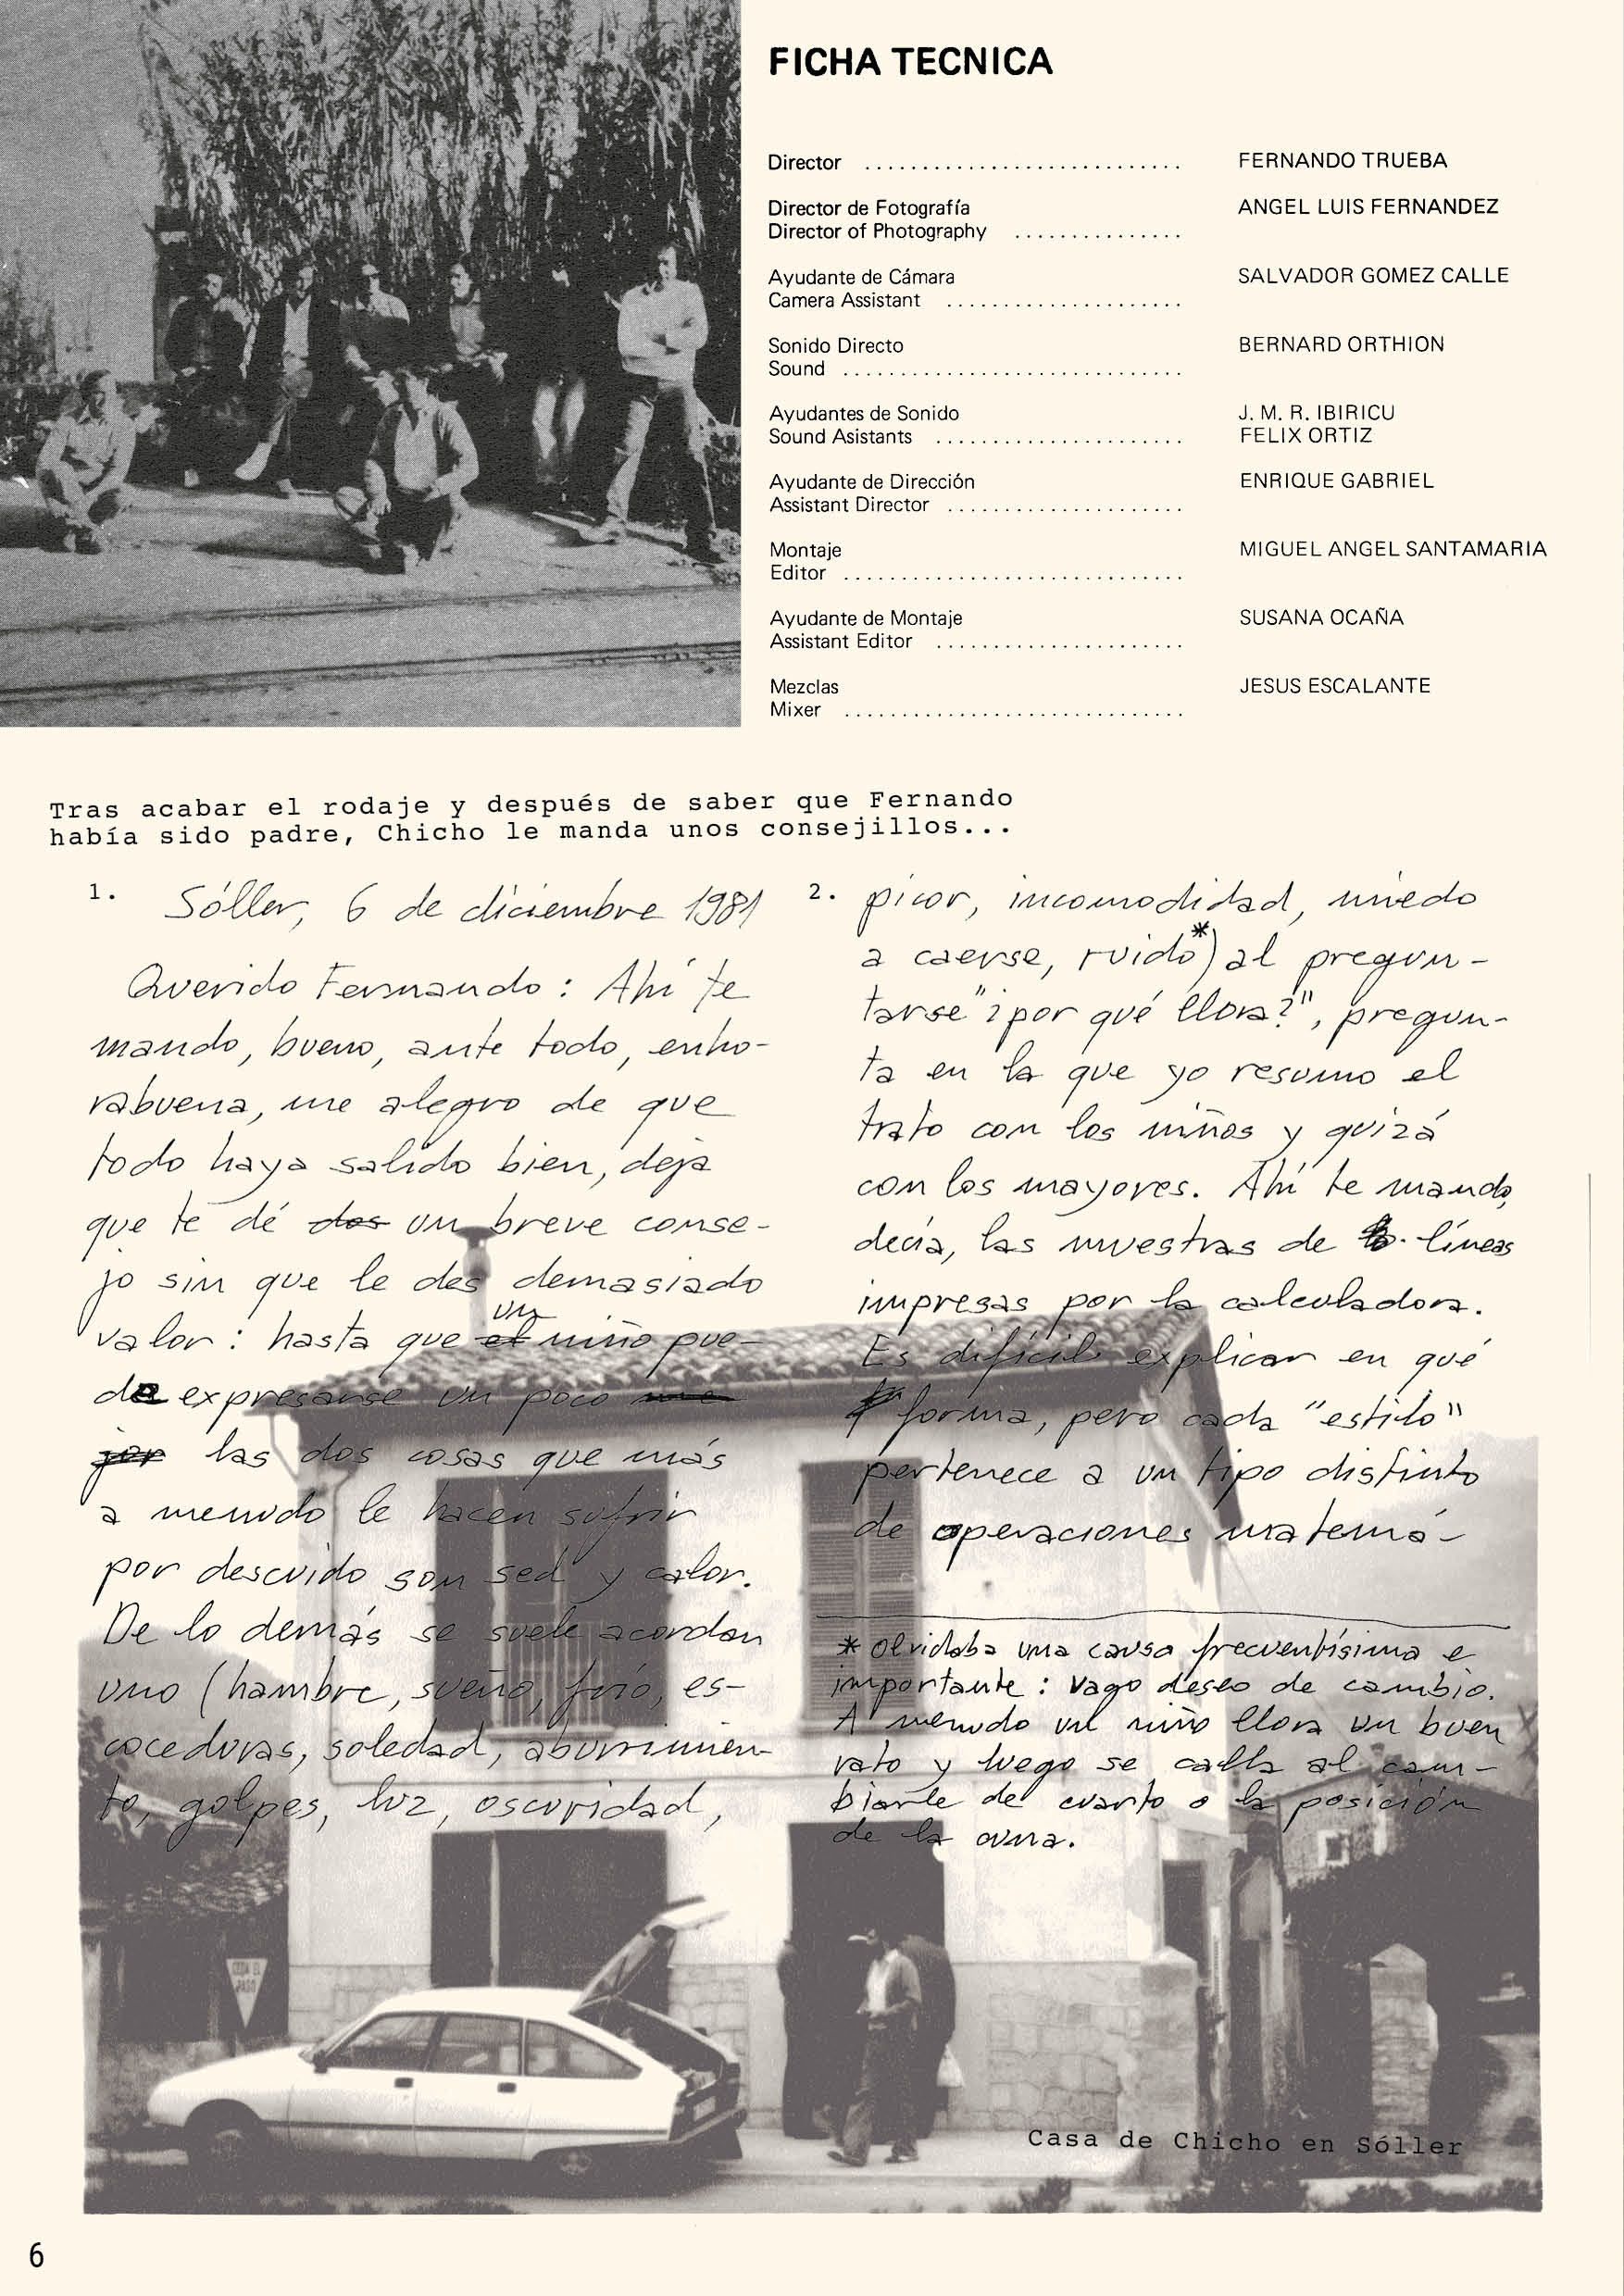 FICHA TECNICA
Director ............................ FERNANDO TRUEBA
Director de Fotografía ANGEL LUIS FERNANDEZ
Director of Photography ...............
Ayudante de Cámara SALVADOR GOMEZ CALLE
Camera Assistant .....................
Sonido Directo BERNARD ORTHION
Sound ..............................
Ayudantes de Sonido J. M. R. IBIRICU
Sound Asistants ...................... FELIX ORTIZ
Ayudante de Dirección ENRIQUE GABRIEL
Assistant Director .....................
Montaje MIGUEL ANGEL SANTAMARIA
Editor ..............................
Ayudante de Montaje SUSANA OCAÑA
Assistant Editor ......................
Mezclas JESUS ESCALANTE
Mixer ..............................
Tras acabar el rodaje y después de saber que Fernando
había sido padre, Chicho le manda unos consejillos...
1. Sóller, 6 de diciembre 1981
Querido Fernando: Ahí te
mando, bueno, ante todo, enho-
rabuena, me alegro de que
todo haya salido bien, deja
que te dé dos un breve conse-
jo sin que le des demasiado
valor: hasta que el un niño pue-
da expresarse un poco me
jor las dos cosas que más
a menudo le hacen sufrir
por descuido son sed y calor.
De lo demás se suele acordar
uno (hambre, sueño, frío, es-
coceduras, soledad, aburrimien-
to, golpes, luz, oscuridad,
2. picor, incomodidad, miedo
a caerse, ruido*) al pregun-
tarse "¿por qué llora?", pregun-
ta en la que yo resumo el
trato con los niños y quizá
con los mayores. Ahí te mando,
decía, las muestras de líneas
impresas por la calculadora.
Es difícil explicar en qué
forma, pero cada "estilo"
pertenece a un tipo distinto
de operaciones matemá-
* Olvidaba una causa frecuentísima e
importante: vago deseo de cambio.
A menudo un niño llora un buen
rato y luego se calla al cam-
biarle de cuarto o la posición
de la cuna.
CEDA EL
PASO
Casa de Chicho en Sóller
6